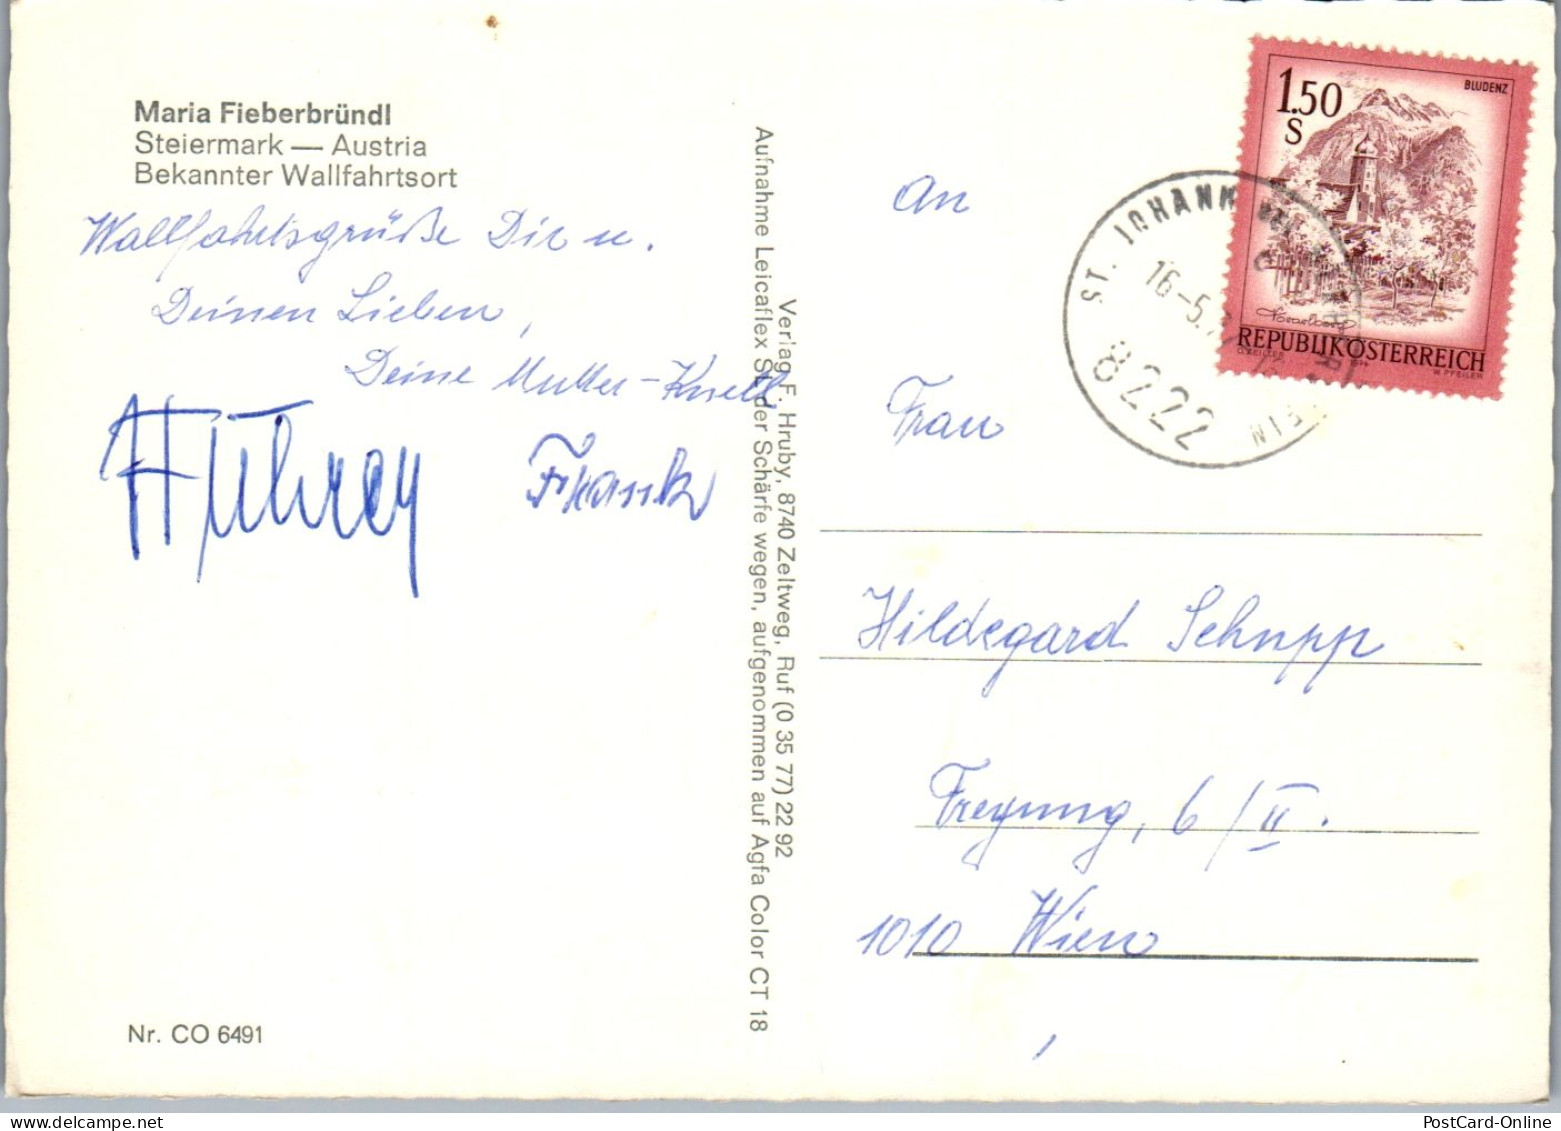 Maria Fieberbründl
Steiermark — Austria
Bekannter Wallfahrtsort
Wallfahrtsgrüße Dir u.
Deinen Lieben,
Deine Mutter-
Frank
Nr. CO 6491
Verlag F. Hruby, 8740 Zeltweg, Ruf (0 35 77) 22 92
Aufnahme Leicaflex SL der Schärfe wegen, aufgenommen auf Agfa Color CT 18
1.50
S
BLUDENZ
Vorarlberg
REPUBLIK ÖSTERREICH
W. PFEILER
ST. JOHANN BEI
16.-5.
8222
An
Frau
Hildegard Schnupp
Freyung, 6/II.
1010 Wien
PostCard-Online